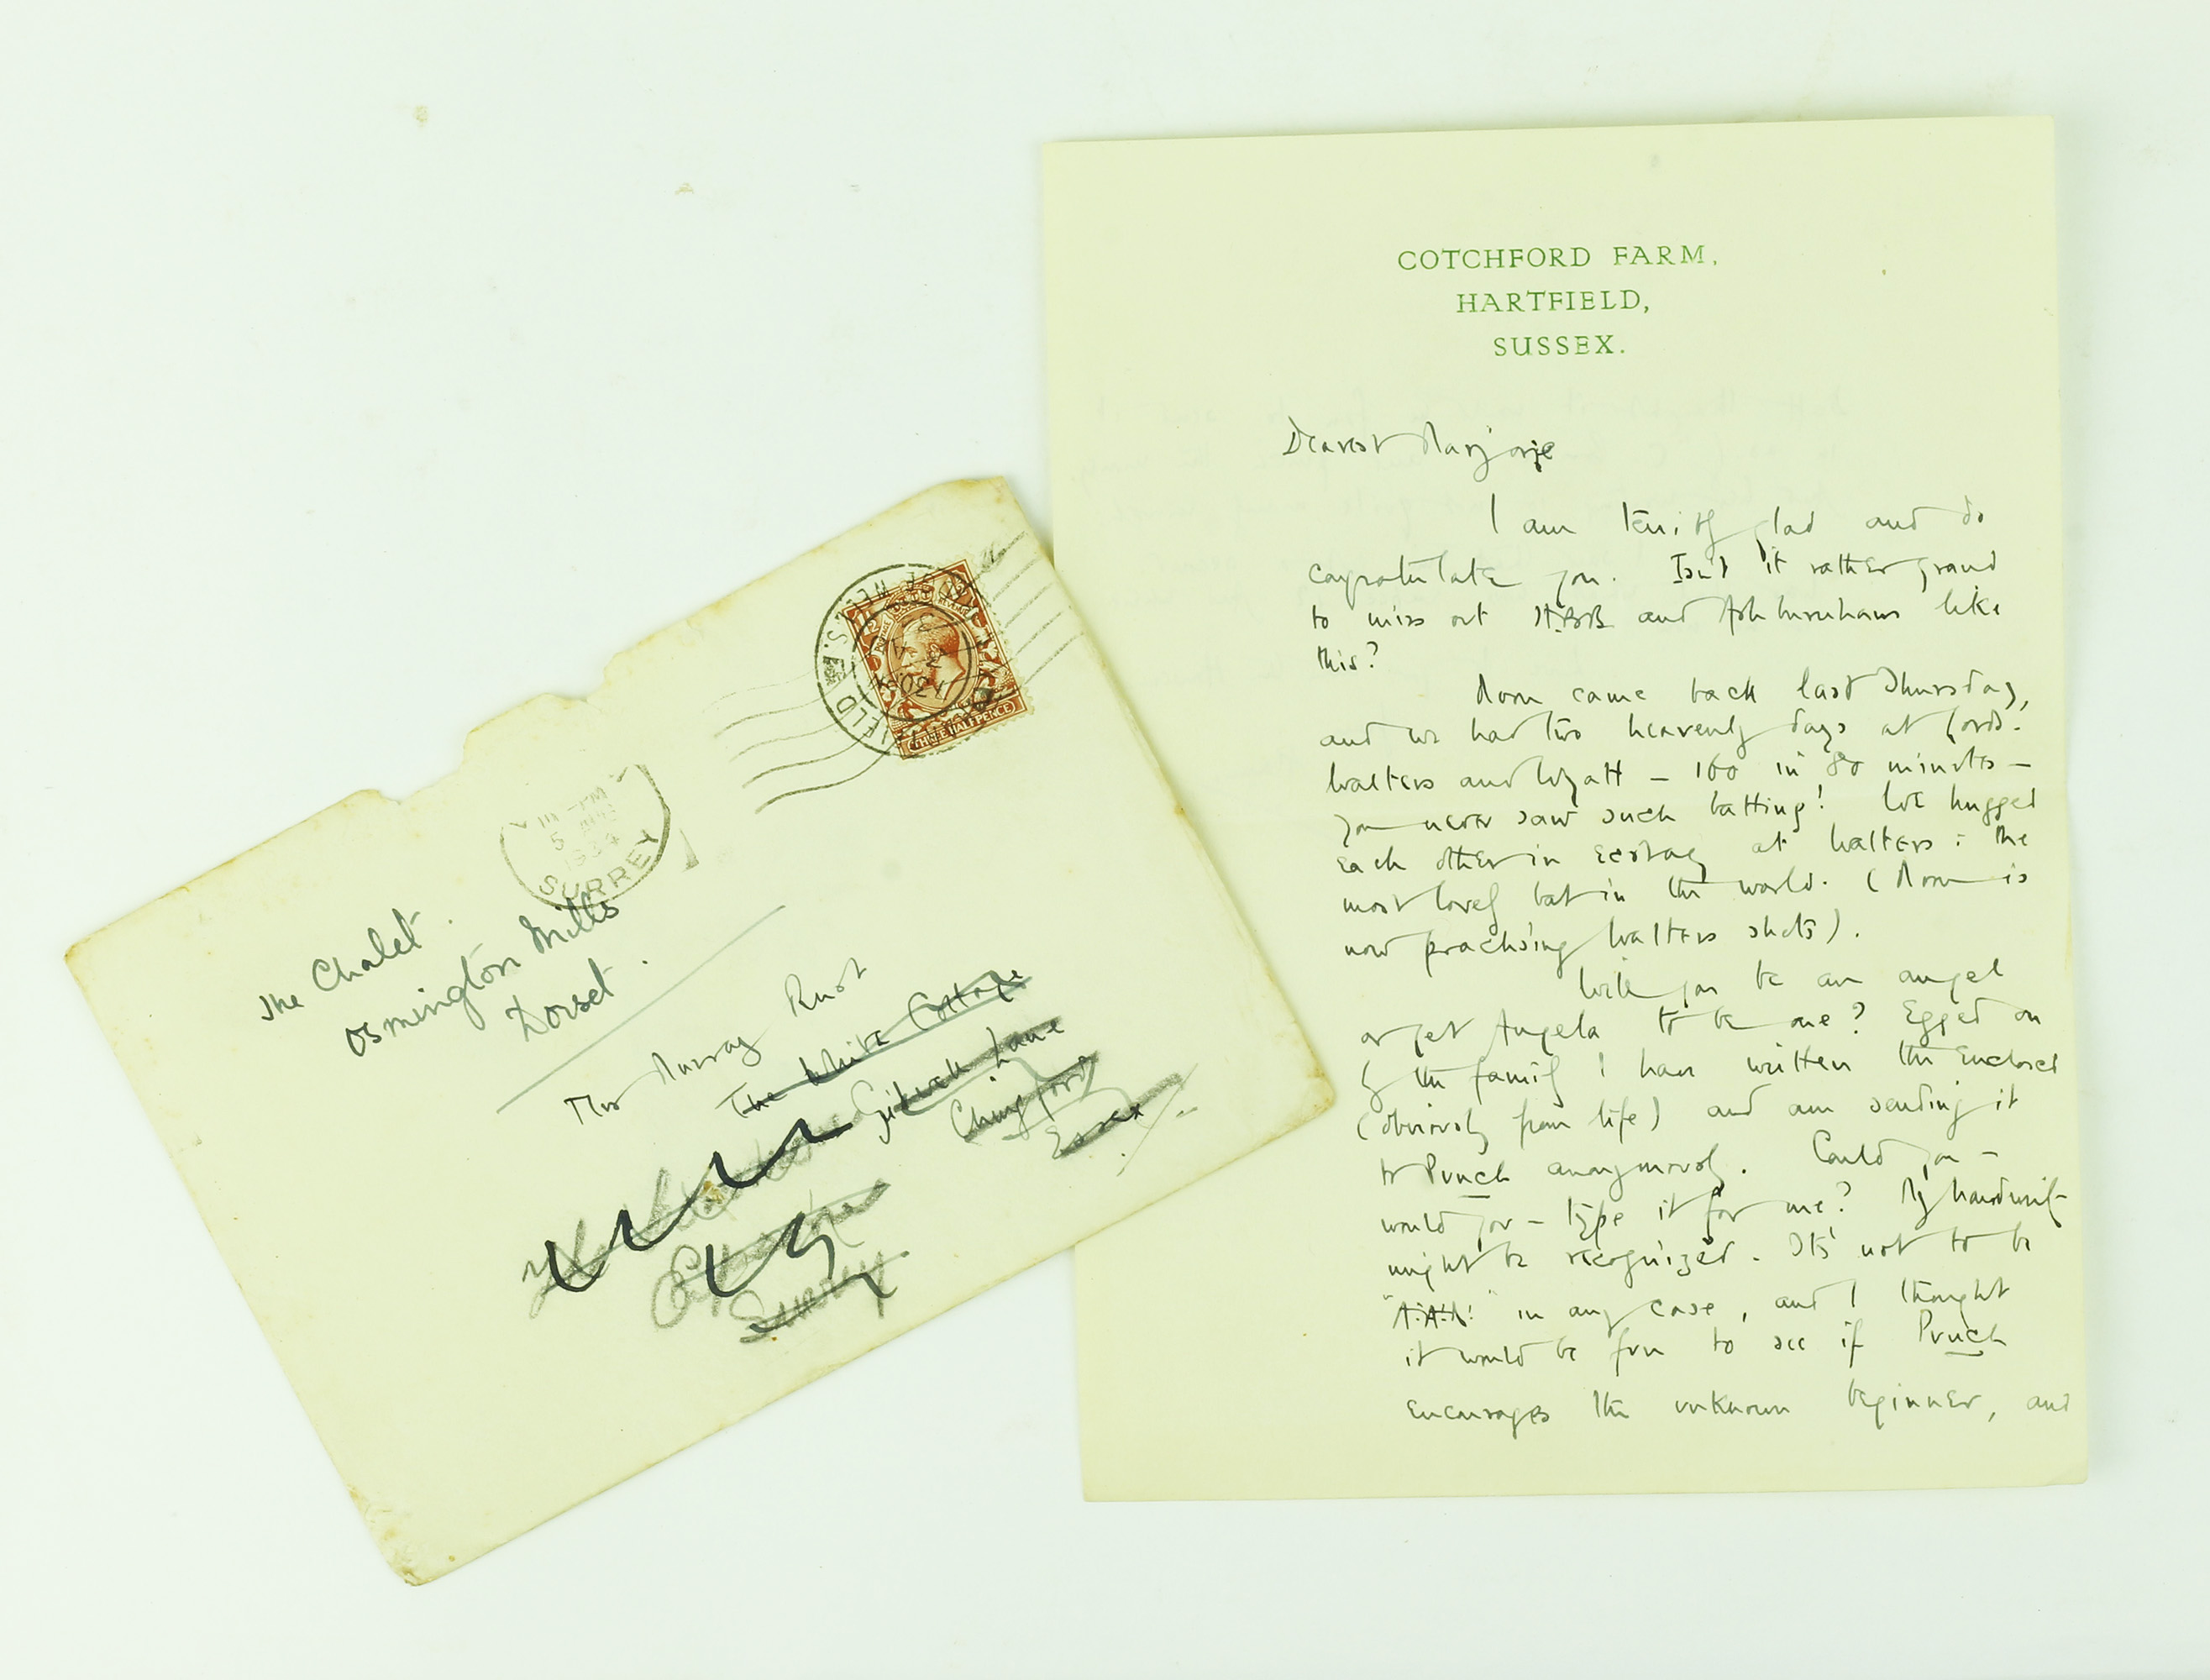 COTCHFORD FARM,
HARTFIELD,
SUSSEX.
Dearest Marjorie
I am terribly glad and do
congratulate you. Isn't it rather grand
to miss out H.B.B. and Ashburnham like
this?
Moon came back last Thursday,
and we had two heavenly days at Lords.
Walters and Wyatt – 160 in 80 minutes –
you never saw such batting! We hugged
each other in ecstasy at Walters: the
most lovely bat in the world. (Moon is
now practising Walters shots).
Will you be an angel
or get Angela to be one? Egged on
by the family I have written the enclosed
(obviously from life) and am sending it
to Punch anonymously. Could you –
would you – type it for me? My handwrit-
might be recognized. Its' not to be
"A.A.M." in any case, and I thought
it would be fun to see if Punch
encourages the unknown beginner, and
THREE HALFPENCE
SURREY
The Chalet.
Osmington Mills
Dorset.
Mrs Murray Rust
The White Cottage
Lane
Chingford
Essex
Surrey